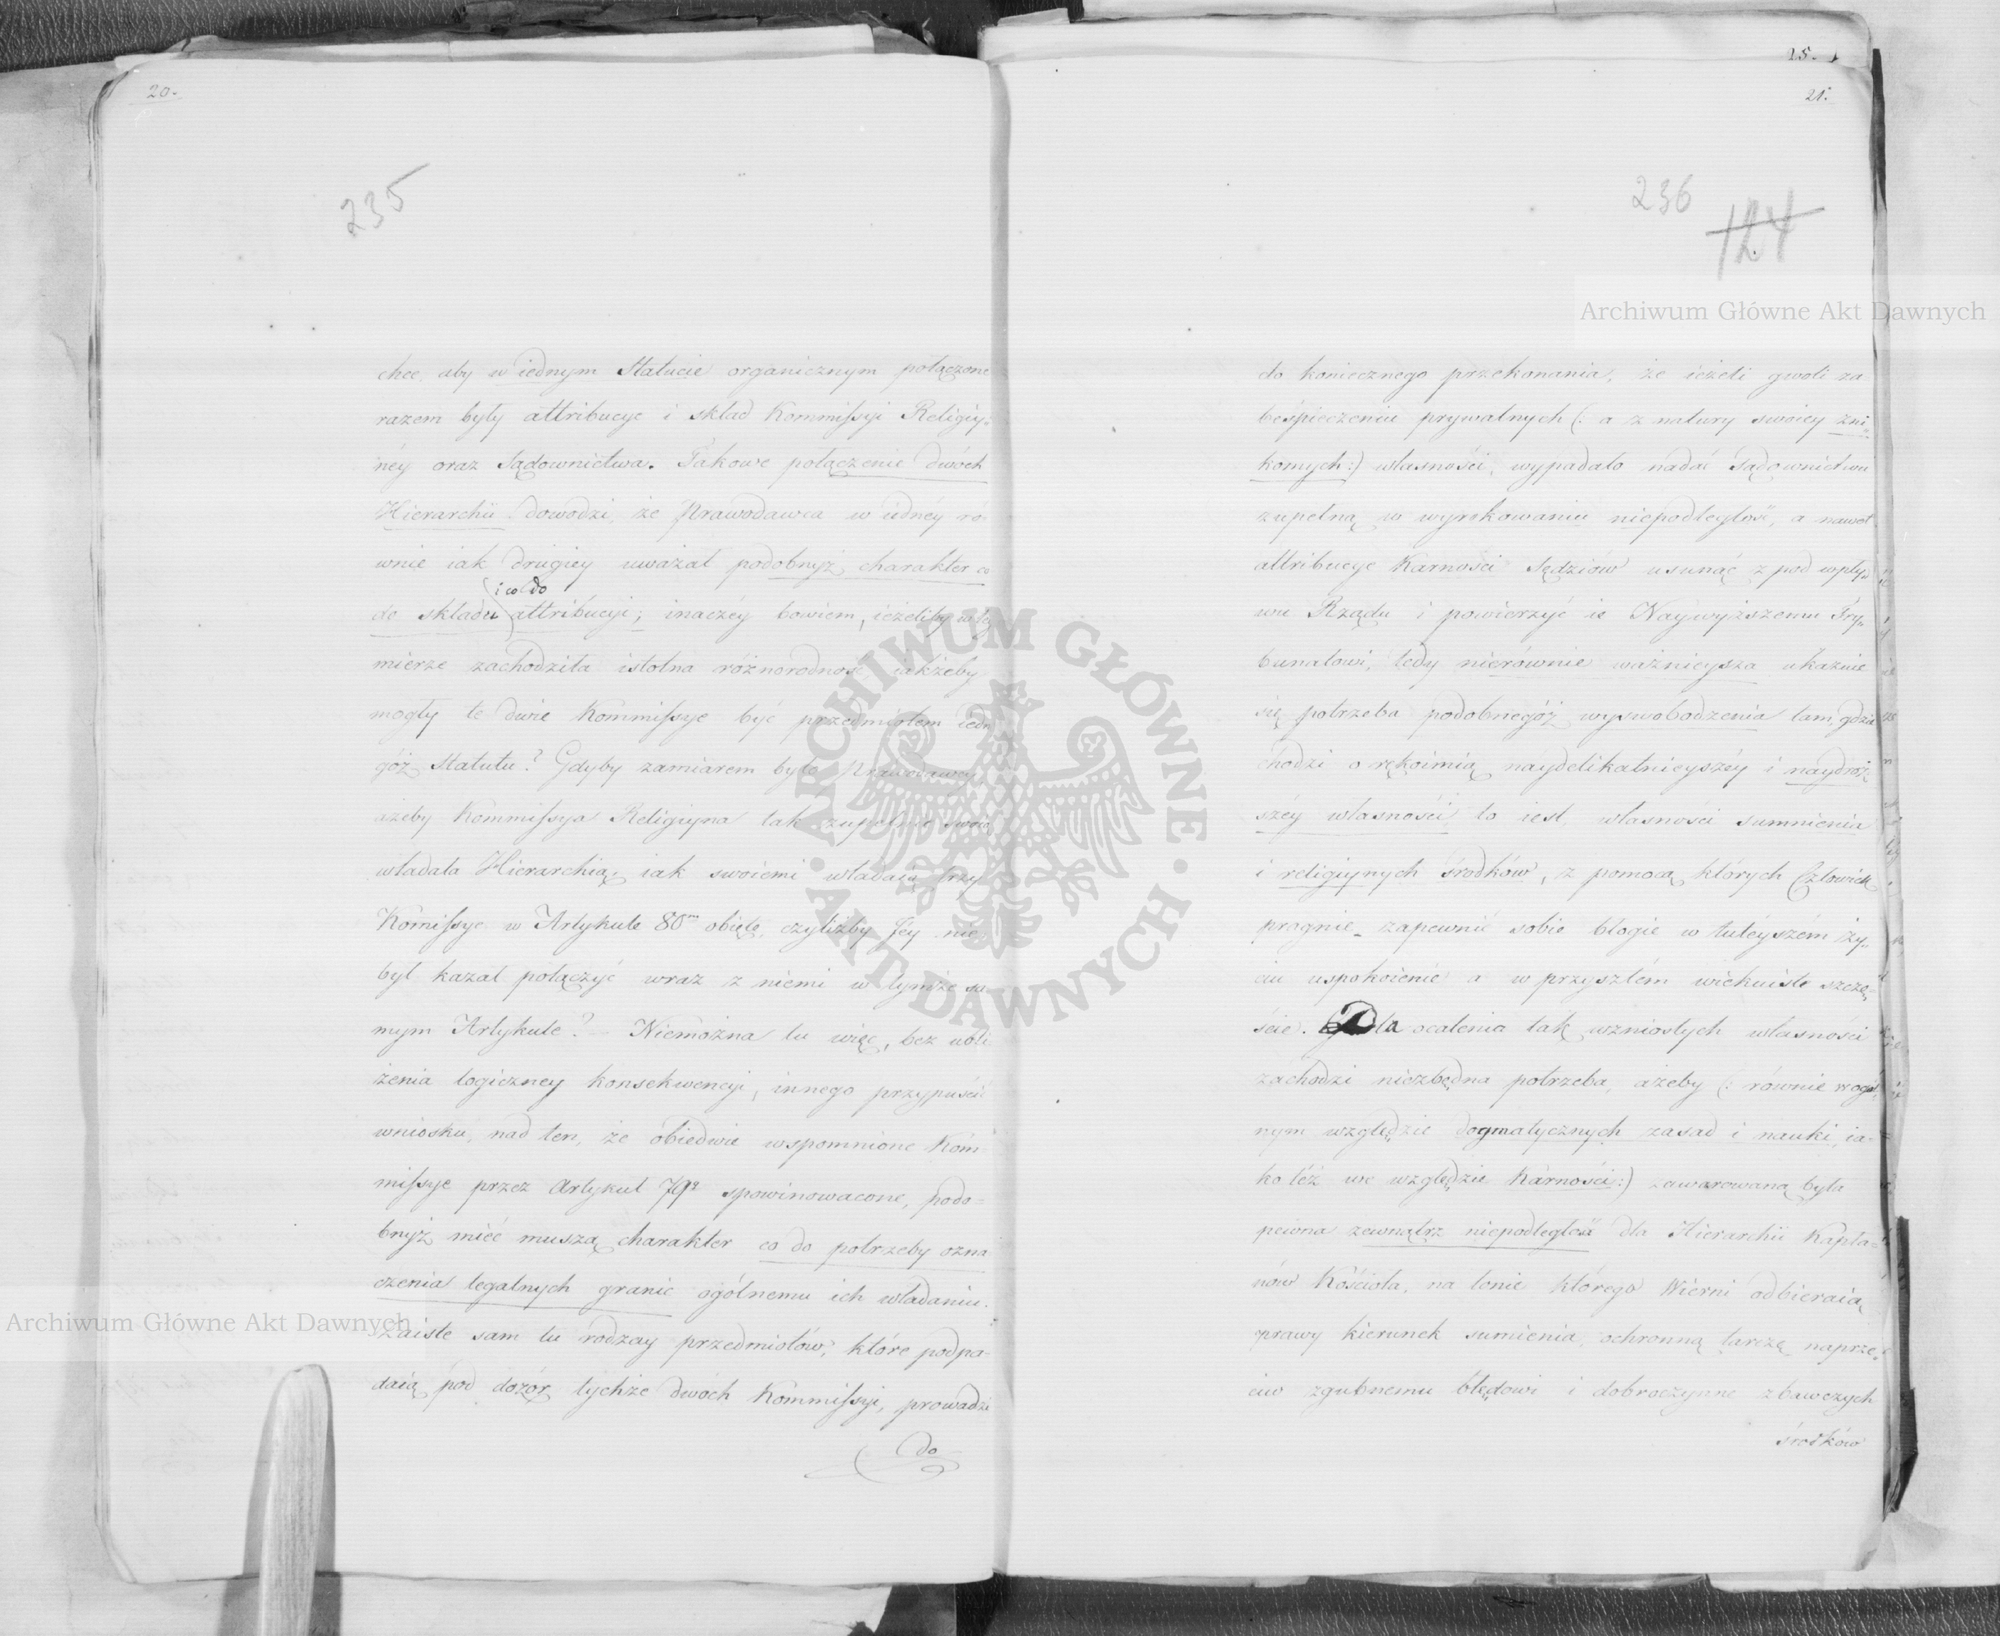 20.
235
chce, aby w iednym Statucie organicznym połączone
razem były attribucye i skład Kommissyi Religiy-
néy oraz Sądownictwa. Takowe połączenie dwóch
Hierarchii dowodzi, że Prawodawca w iednéy ró-
wnie iak drugiey uważał podobnyż charakter co
i co do
do składu attribucyi; inaczéy bowiem, ieżeliby w téy
mierze zachodziła istotna różnorodność iakżeby
mogły te dwie Kommissye być przedmiotem iedne-
góż Statutu? Gdyby zamiarem było Prawodawcy,
ażeby Kommissya Religiyna tak zupełnie swoią
władała Hierarchią, iak swoiemi władaią trzy
Komissye w Artykule 80m obięte, czyliżby Jey nie
był kazał połączyć wraz z niemi w tymże sa-
mym Artykule? – Niemożna tu więc, bez ubli
żenia logiczney konsekwencyi, innego przypuścić
wniosku, nad ten, że obiedwie wspomnione Kom
missye przez Artykuł 79ty spowinowacone, podo-
bnyż mieć muszą charakter co do potrzeby ozna
czenia legalnych granic ogólnemu ich władaniu.
Zaiste sam tu rodzay przedmiotów, które podpa-
daią pod dozór tychże dwóch Kommissyi, prowadzi
do
15.
21.
236
124
Archiwum Główne Akt Dawnych
do koniecznego przekonania, że ieżeli gwoli za
bespieczeniu prywatnych (: a z natury swoiey zni-
komych:) własności, wypadało nadać Sądownictwu
zupełną w wyrokowaniu niepodległość, a nawet
attribucye Karności Sędziów usunąć z pod wpły-
wu Rządu i powierzyć ie Naywyższemu Try-
bunałowi, tedy nierównie ważnieysza ukazuie
się potrzeba podobnegóż wyswobodzenia tam, gdzie
chodzi o rękoimią naydelikatnieyszéy i naydroż-
széy własności, to iest, własności sumnienia
i religiynych środków, z pomocą których Człowiek
pragnie zapewnić sobie błogie w tuteyszém ży-
ciu uspokoienie a w przyszłém wiekuiste szczę-
ście. Dla ocalenia tak wzniosłych własności
zachodzi niezbędna potrzeba, ażeby (: równie w ogól-
nym względzie dogmatycznych zasad i nauki, ia-
ko téż we względzie Karności:) zawarowaną była
pewna zewnątrz niepodległość dla Hierarchii Kapła-
nów Kościoła, na łonie którego Wierni odbieraią
prawy kierunek sumienia, ochronną tarczę naprze-
ciw zgubnemu błędowi i dobroczynne zbawczych
środków
Archiwum Główne Akt Dawnych
ARCHIWUM GŁÓWNE · AKT DAWNYCH ·